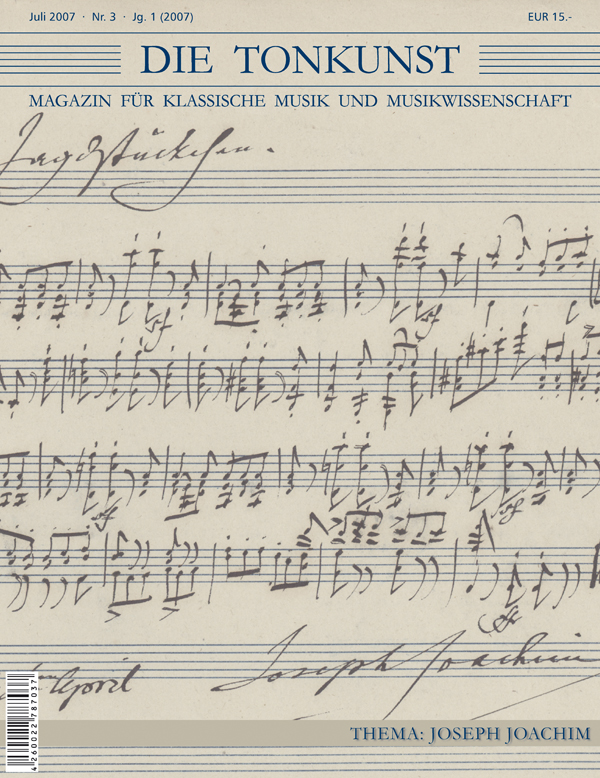 Juli 2007 · Nr. 3 · Jg. 1 (2007) EUR 15.-
DIE TONKUNST
MAGAZIN FÜR KLASSISCHE MUSIK UND MUSIKWISSENSCHAFT
Jagdstückchen.
sf
sf
sf
sf
sf
April
Joseph Joachim
4 260022 787037
THEMA: JOSEPH JOACHIM